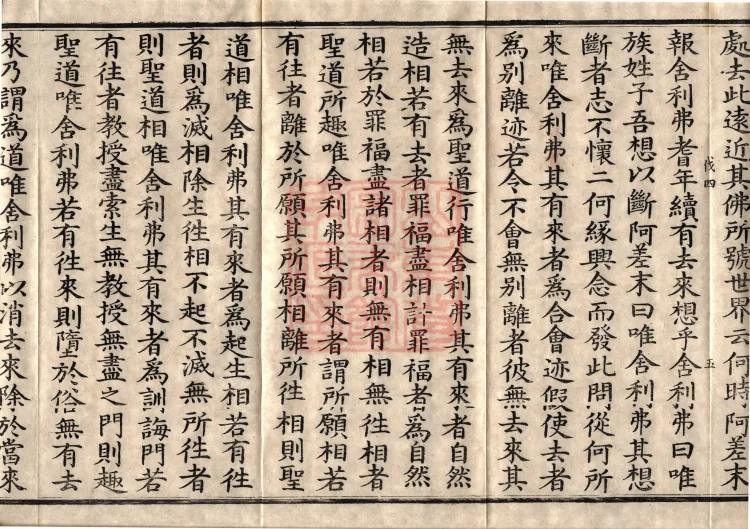 處去此遠近其佛所號世界云何時阿差末
報舍利弗耆年續有去來想乎舍利弗曰唯
伐四
五
族姓子吾想以斷阿差末曰唯舍利弗其想
斷者志不懷二何緣興念而發此問從何所
來唯舍利弗其有來者為合會迹假使去者
為別離迹若令不會無別離者彼無去來其
無去來為聖道行唯舍利弗其有來者自然
造相若有去者罪福盡相計罪福者為自然
相若於罪福盡諸相者則無有相無往相者
聖道所趣唯舍利弗其有來者謂所願相若
有往者離於所願其所願相離所往相則聖
道相唯舍利弗其有來者為起生相若有往
者則為滅相除生往相不起不滅無所往者
則聖道相唯舍利弗其有來者為訓誨門若
有往者教授盡索生無教授無盡之門則趣
聖道唯舍利弗若有往來則墮於俗無有去
來乃謂為道唯舍利弗以消去來除於當來